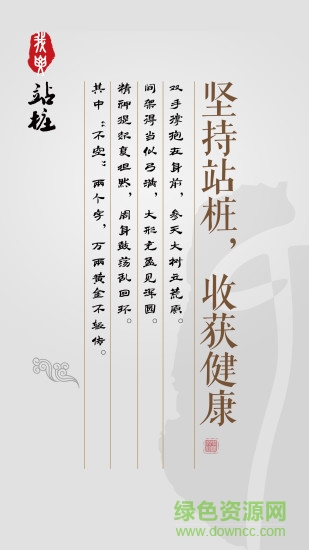 坚持站桩，收获健康
双手撑抱立身前，参天大树立荒原。
间架得当似弓满，大形充盈见浑圆。
精神提起复坦然，周身鼓荡乱回环。
其中“不空”两个字，万两黄金不轻传。
我與
站桩
绿色资源网
www.downcc.com